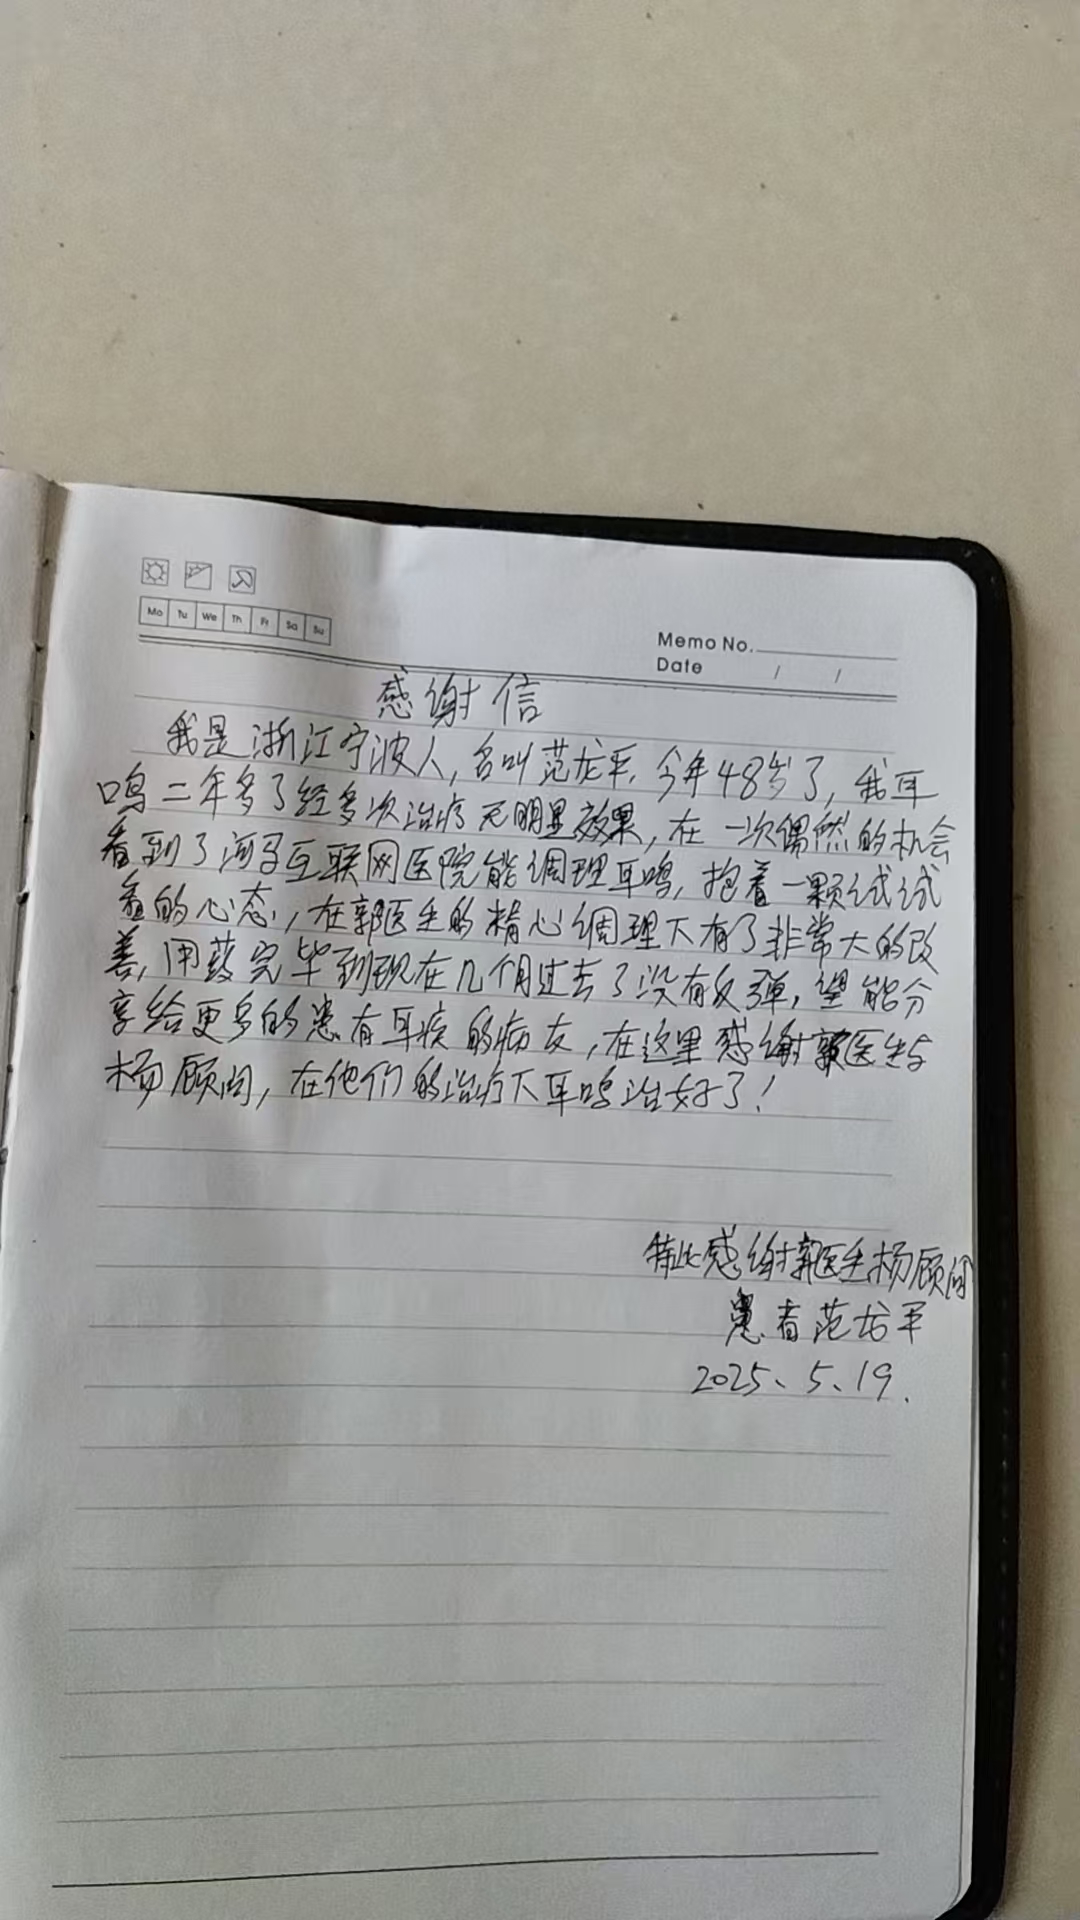 Mo Tu We Th Fr Sa Su
Memo No.
Date / /
感谢信
我是浙江宁波人,名叫范龙平,今年48岁了,我耳
鸣二年多了经多次治疗无明显效果,在一次偶然的机会
看到了河马互联网医院能调理耳鸣,抱着一颗试试
看的心态,在郭医生的精心调理下有了非常大的改
善,用药完毕到现在几个月过去了没有反弹,望能分
享给更多的患有耳疾的病友,在这里感谢郭医生与
杨顾问,在他们的治疗下耳鸣治好了!
特此感谢郭医生杨顾问
患者范龙平
2025、5、19.